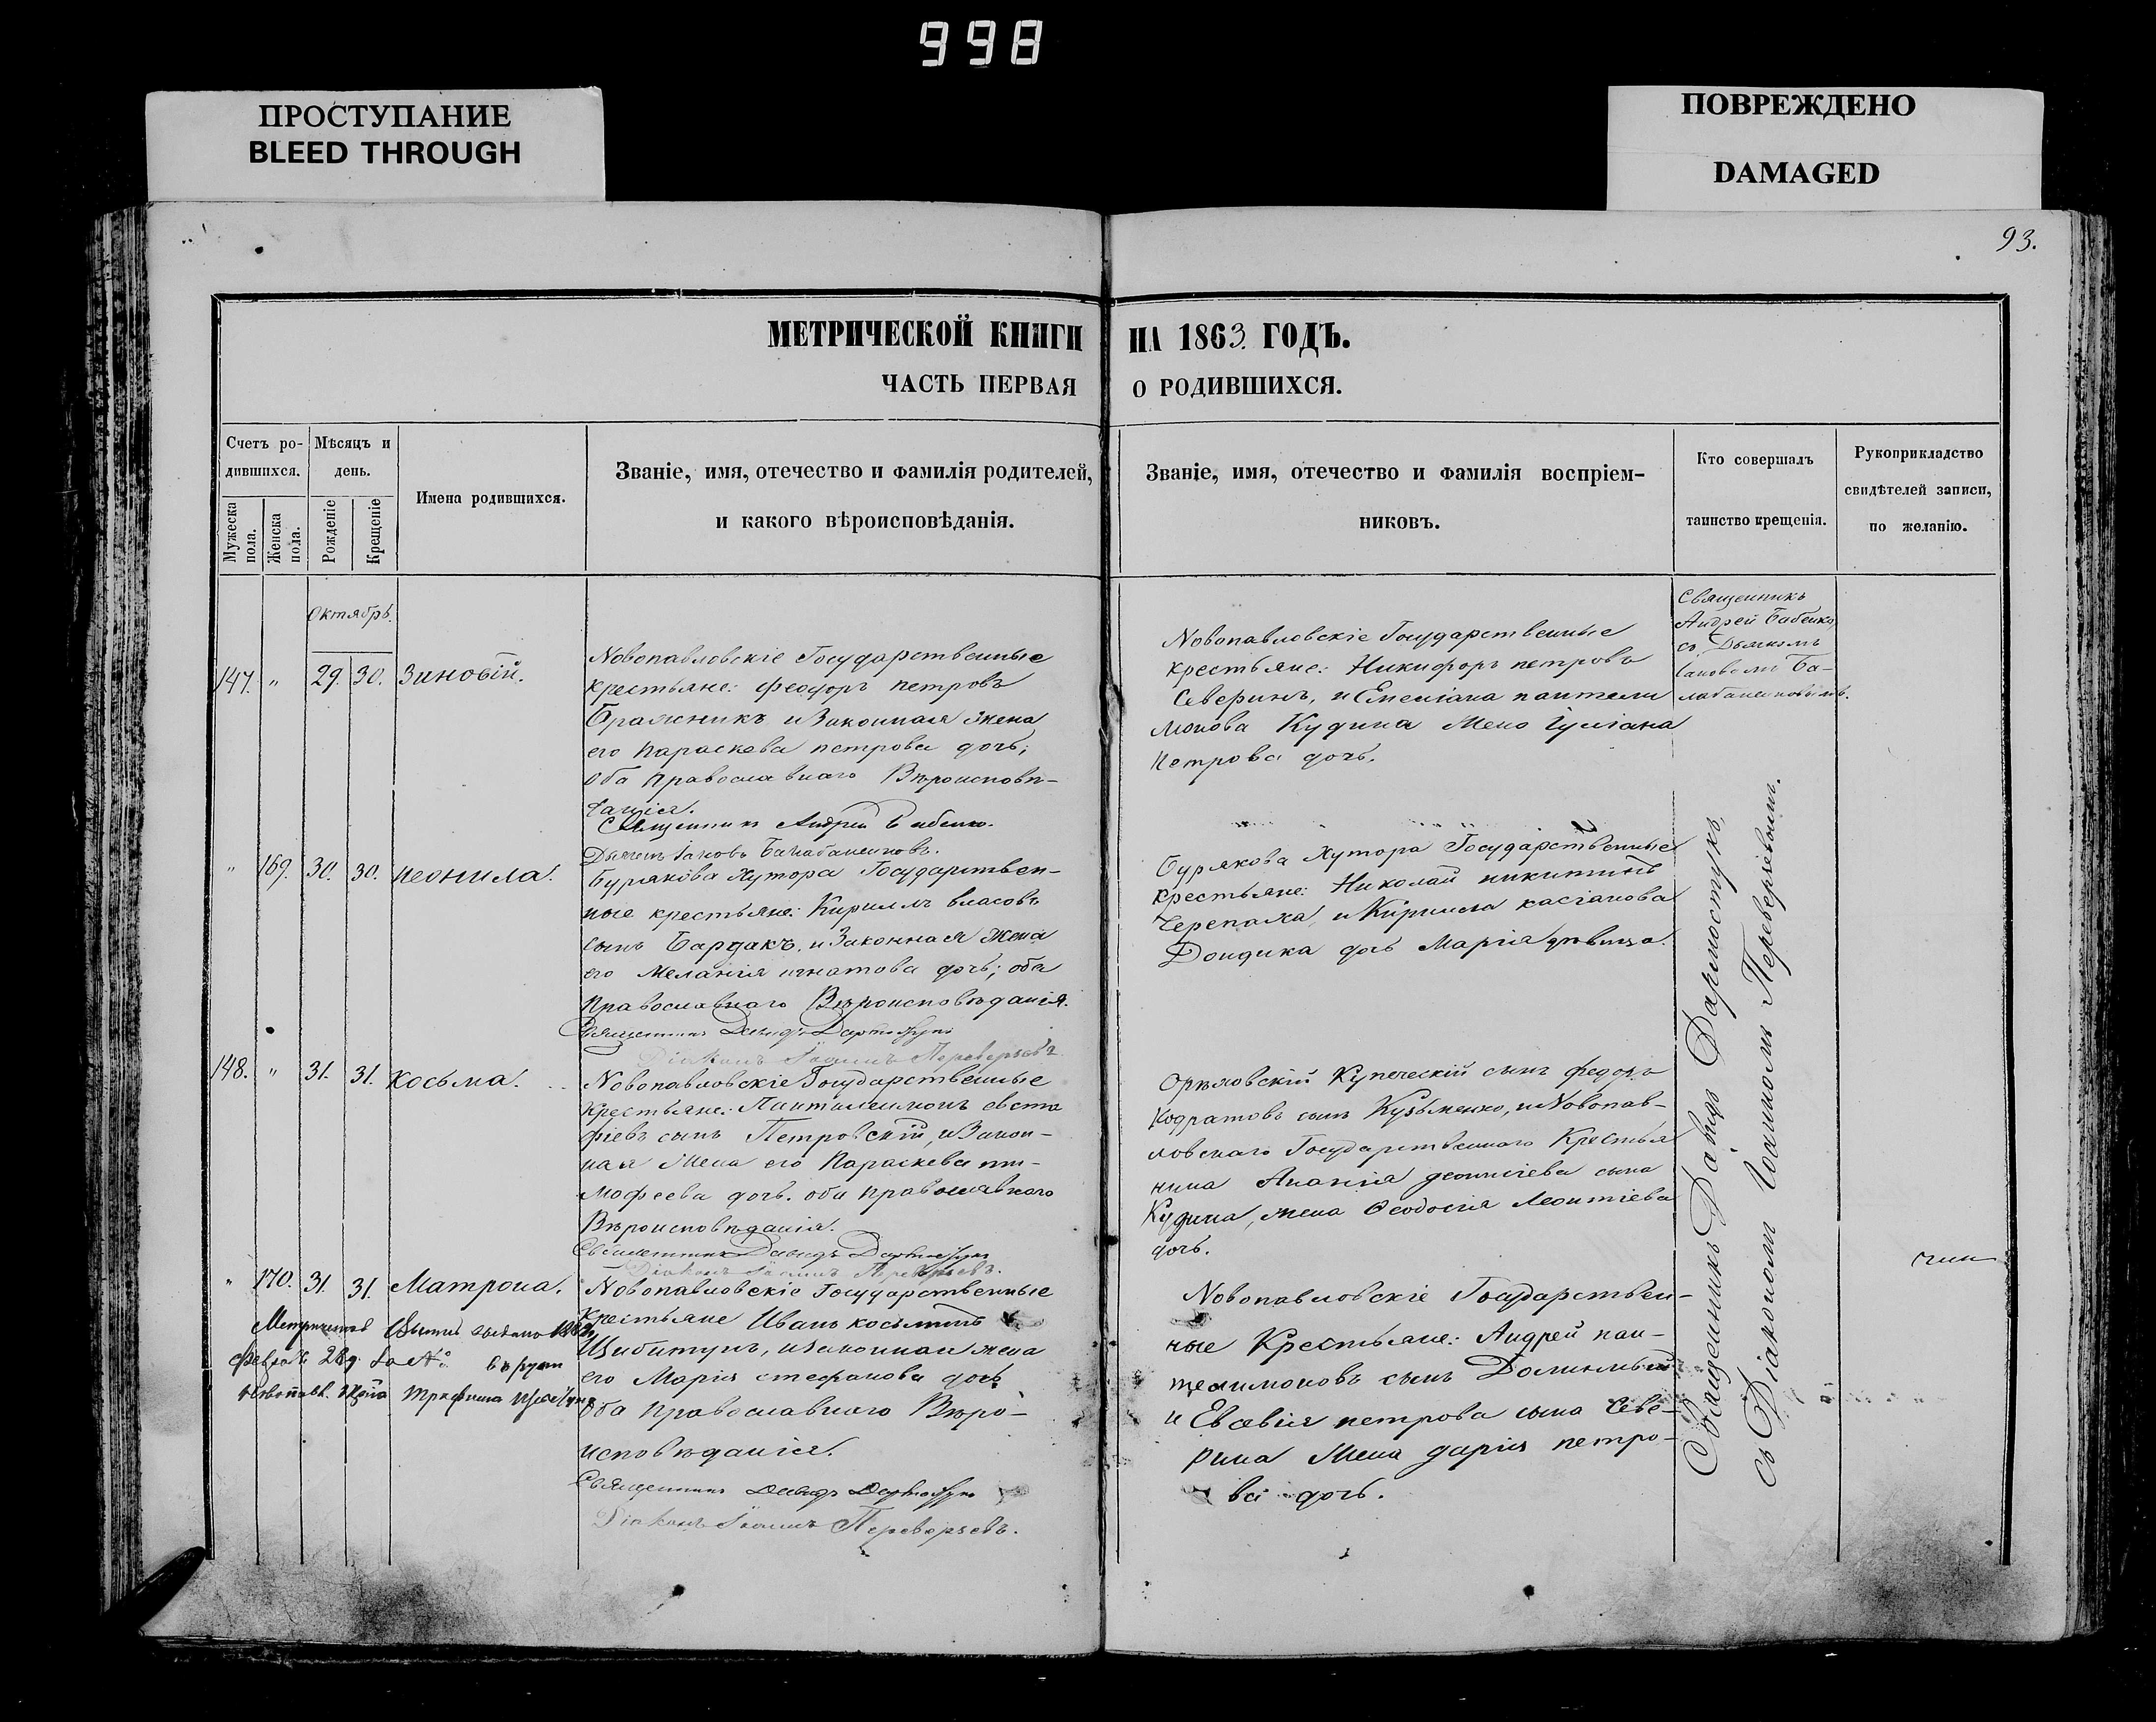 998
ПРОСТУПАНИЕ
BLEED THROUGH
ПОВРЕЖДЕНО
DAMAGED
93.
МЕТРИЧЕСКОЙ КНИГИ НА 1863. ГОДЪ.
ЧАСТЬ ПЕРВАЯ О РОДИВШИХСЯ.
Счетъ ро-
дившихся.
Мужеска пола.
Женска пола.
Мѣсяцъ и
день.
Рожденіе
Крещеніе
Имена родившихся.
Званіе, имя, отечество и фамилія родителей,
и какого вѣроисповѣданія.
Званіе, имя, отечество и фамилія воспріем-
никовъ.
Кто совершалъ
таинство крещенія.
Рукоприкладство
свидѣтелей записи,
по желанію.
Октябрь.
147. " 29. 30. Зиновій.
Новопавловскіе Государственные
крестьяне: Феодоръ петровъ
Бражникъ и Законная жена
его Параскева петрова дочь;
оба православнаго Вѣроисповѣ-
данія.
Священникъ Андрей Бабенко.
Новопавловскіе Государственные
крестьяне: Никифоръ петровъ
Северинъ, и Емеліана пантели
монова Кудина жена Іуліана
петрова дочь.
Священникъ
Андрей Бабенко
съ Дьякомъ
" 169. 30. 30. Неонила.
Бурякова Хутора Государствен-
ные крестьяне: Кириллъ власовъ
сынъ Бардакъ, и Законная жена
его Меланія игнатова дочь; оба
Православнаго Вѣроисповѣданія.
Священникъ Давидъ
Діаконъ Іоаннъ Переверзевъ
Бурякова Хутора Государственные
крестьяне: Николай никитинъ
Черепаха, и Кирилла касіанова
Дондика дочь Марія дѣвица.
148. " 31. 31. Косьма.
Новопавловскіе Государственные
крестьяне: Пантелеимонъ евста
фіевъ сынъ Петровскій, и Закон-
ная жена его Параскева ти-
мофеева дочь. оба православнаго
Вѣроисповѣданія.
Священникъ Давидъ
Діаконъ Іоаннъ Переверзевъ.
Орѣховскій Купеческій сынъ федоръ
Кодратовъ сынъ Кузьменко, и Новопав-
ловскаго Государственнаго Крестья
нина Ананія деонисіева сына
Кудина, жена Феодосія Леонтіева
дочь.
" 170. 31. 31. Матрона.
Новопавловскіе Государственные
крестьяне Иванъ косьминъ
Цибитуръ, и законная жена
его Марія стефанова дочь
оба православнаго Вѣро-
исповѣданія.
Священникъ Давидъ
Діаконъ Іоаннъ Переверзевъ.
Новопавловскіе Государствен-
ные Крестьяне: Андрей пан-
телимоновъ сынъ
и Евсевія петрова сына Севе-
рина жена дарія петро-
ва дочь.
Священникъ Давидъ
съ Діакономъ Іоанномъ Переверзевымъ.